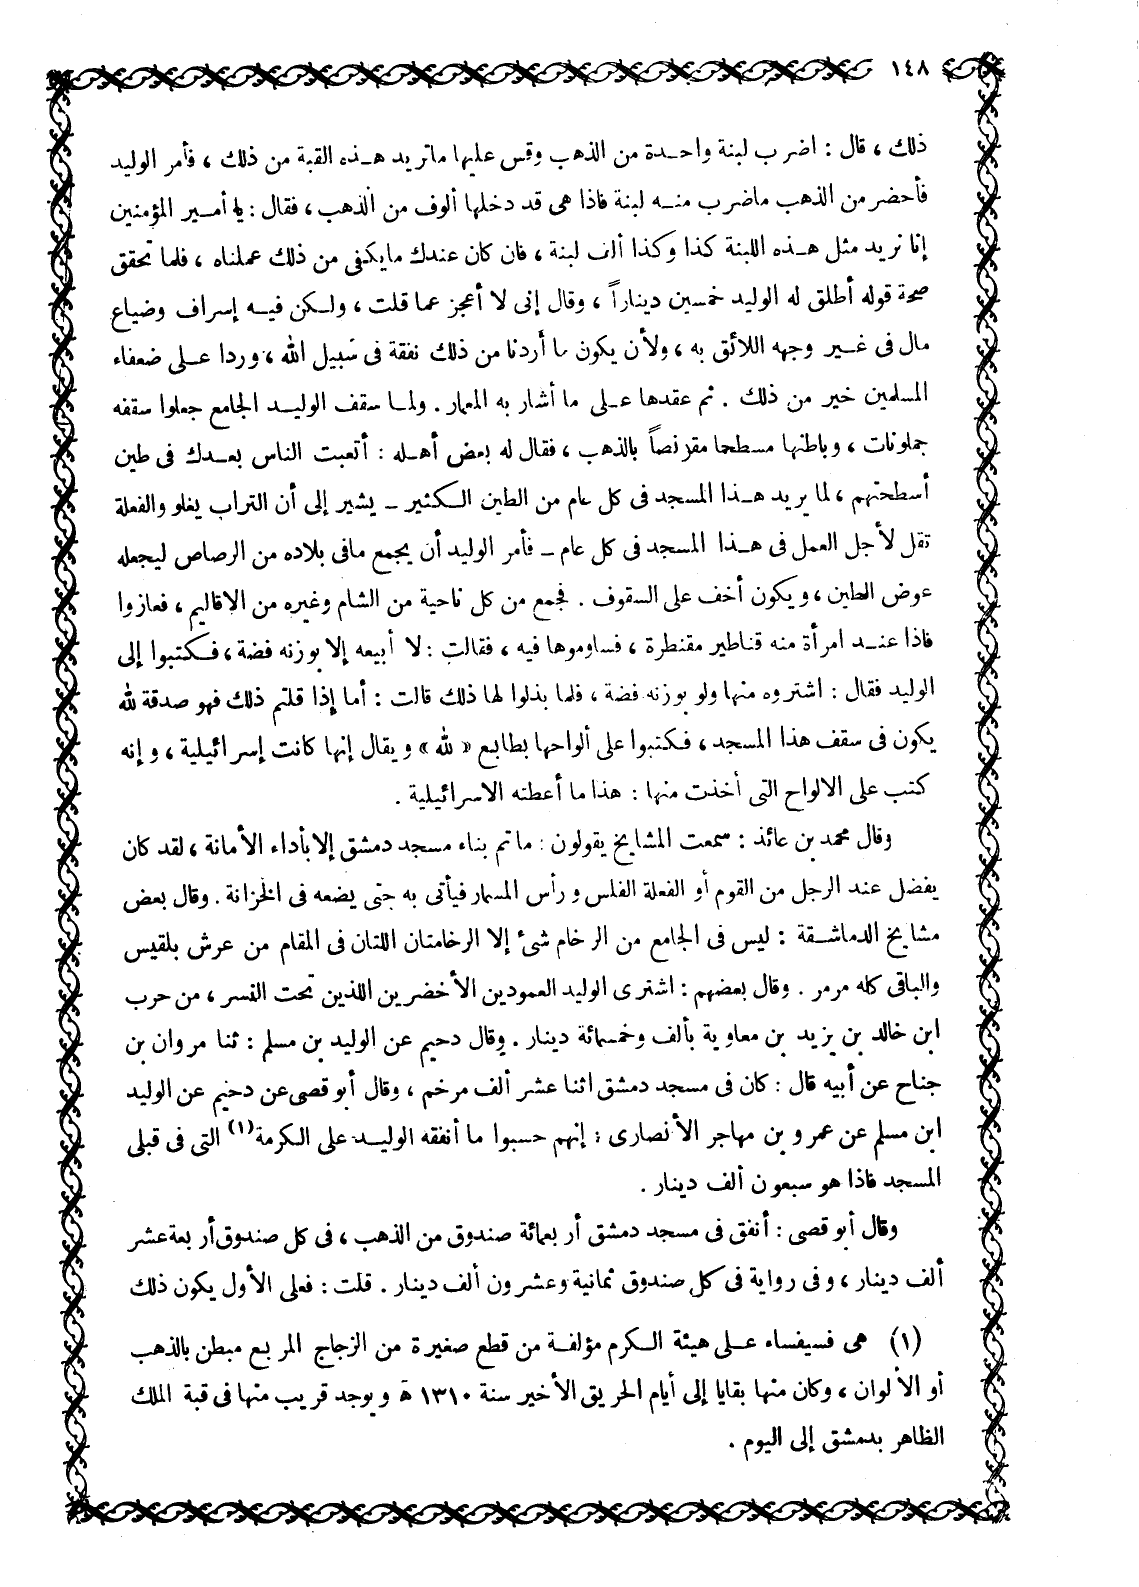 ١٤٨
ذلك ، قال : اضرب لبنة واحدة من الذهب وقس عليها ماتريد هذه القبة من ذلك ، فأمر الوليد
فأحضر من الذهب ماضرب منه لبنة فاذا هى قد دخلها ألوف من الذهب ، فقال : يا أمير المؤمنين
إنا نريد مثل هذه اللبنة كذا وكذا ألف لبنة ، فان كان عندك مايكفى من ذلك عملناه ، فلما تحقق
صحة قوله أطلق له الوليد خمسين ديناراً ، وقال إنى لا أعجز عما قلت ، ولكن فيه إسراف وضياع
مال فى غير وجهه اللائق به ، ولأن يكون ما أردنا من ذلك نفقة فى سبيل الله ، وردا على ضعفاء
المسلمين خير من ذلك . ثم عقدها على ما أشار به المعمار . ولما سقف الوليد الجامع جعلوا سقفه
جملونات ، وباطنها مسطحا مقرنصاً بالذهب ، فقال له بعض أهله : أتعبت الناس بعدك فى طين
أسطحتهم ، لما يريد هذا المسجد فى كل عام من الطين الكثير ـ يشير إلى أن التراب يغلو والفعلة
تقل لأجل العمل فى هذا المسجد فى كل عام ـ فأمر الوليد أن يجمع مافى بلاده من الرصاص ليجعله
عوض الطين ، ويكون أخف على السقوف . فجمع من كل ناحية من الشام وغيره من الاقاليم ، فعازوا
فاذا عند امرأة منه قناطير مقنطرة ، فساوموها فيه ، فقالت : لا أبيعه إلا بوزنه فضة ، فكتبوا إلى
الوليد فقال : اشتروه منها ولو بوزنه فضة ، فلما بذلوا لها ذلك قالت : أما إذا قلتم ذلك فهو صدقة لله
يكون فى سقف هذا المسجد ، فكتبوا على ألواحها بطابع « لله » ويقال إنها كانت إسرائيلية ، وإنه
كتب على الالواح التى أخذت منها : هذا ما أعطته الاسرائيلية .
وقال محمد بن عائذ : سمعت المشايخ يقولون : ماتم بناء مسجد دمشق إلا بأداء الأمانة ، لقد كان
يفضل عند الرجل من القوم أو الفعلة الفلس ورأس المسمار فيأتى به حتى يضعه فى الخزانة . وقال بعض
مشايخ الدماشقة : ليس فى الجامع من الرخام شئ إلا الرخامتان اللتان فى المقام من عرش بلقيس
والباقى كله مرمر . وقال بعضهم : اشترى الوليد العمودين الأخضرين اللذين تحت النسر ، من حرب
ابن خالد بن يزيد بن معاوية بألف وخمسمائة دينار . وقال دحيم عن الوليد بن مسلم : ثنا مروان بن
جناح عن أبيه قال : كان فى مسجد دمشق اثنا عشر ألف مرخم ، وقال أبو قصى عن دحيم عن الوليد
ابن مسلم عن عمرو بن مهاجر الأنصارى : إنهم حسبوا ما أنفقه الوليد على الكرمة (١) التى فى قبلى
المسجد فاذا هو سبعون ألف دينار .
وقال أبو قصى : أنفق فى مسجد دمشق أربعمائة صندوق من الذهب ، فى كل صندوق أربعة عشر
ألف دينار ، وفى رواية فى كل صندوق ثمانية وعشرون ألف دينار . قلت : فعلى الأول يكون ذلك
(١) هى فسيفساء على هيئة الكرم مؤلفة من قطع صغيرة من الزجاج المربع مبطن بالذهب
أو الألوان ، وكان منها بقايا إلى أيام الحريق الأخير سنة ١٣١٠ هـ ويوجد قريب منها فى قبة الملك
الظاهر بدمشق إلى اليوم .